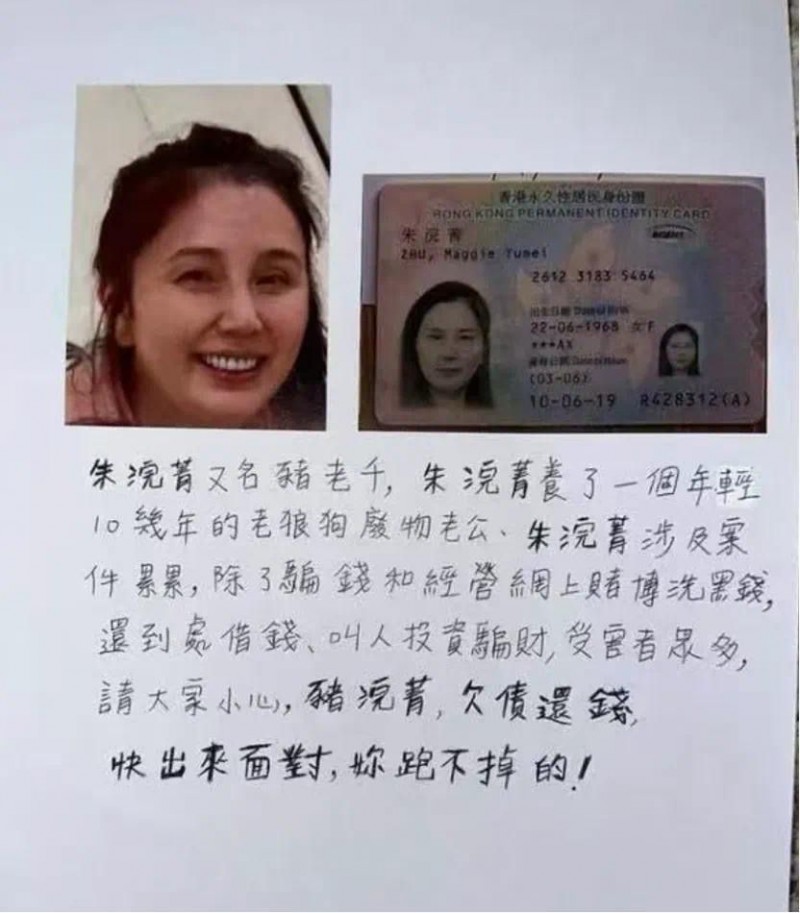 香港永久性居民身份證
HONG KONG PERMANENT IDENTITY CARD
朱浣菁
ZHU, Maggie Yumei
2612 3183 5464
出生日期 Date of Birth
22-06-1968 女 F
***AX
簽發日期 Date of Issue
(03-06)
10-06-19 R428312(A)
朱浣菁又名豬老千, 朱浣菁養了一個年輕
10幾年的老狼狗廢物老公、朱浣菁涉及案
件累累, 除了騙錢和經營網上賭博洗黑錢,
還到處借錢、叫人投資騙財, 受害者眾多,
請大家小心, 豬浣菁, 欠債還錢,
快出來面對, 妳跑不掉的!